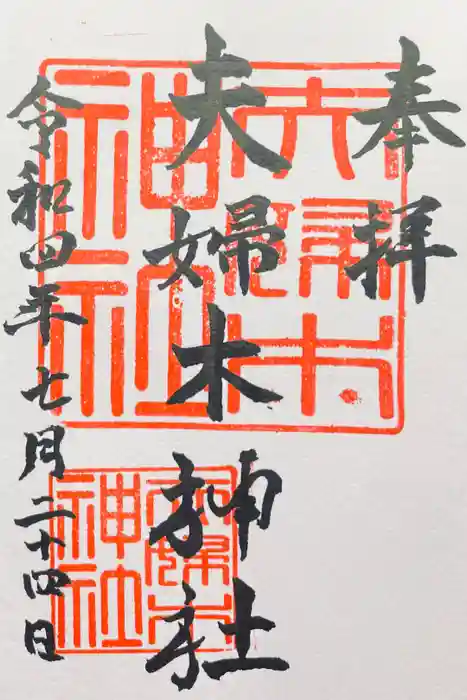 奉拝
夫婦木神社
令和四年七月二十四日
夫婦木神社
夫婦木神社